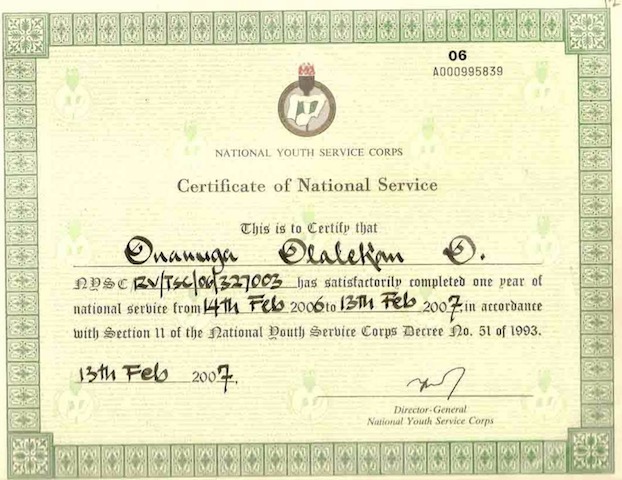 06
A000995839
NATIONAL YOUTH SERVICE CORPS
Certificate of National Service
This is to Certify that
Onanuga Olalekan O.
NYSC RV/TSC/06/327003 has satisfactorily completed one year of
national service from 14th Feb 2006 to 13th Feb 2007, in accordance
with Section 11 of the National Youth Service Corps Decree No. 51 of 1993.
13th Feb 2007.
Director-General
National Youth Service Corps